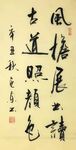 風檐展書讀
古道照顏色
辛丑秋